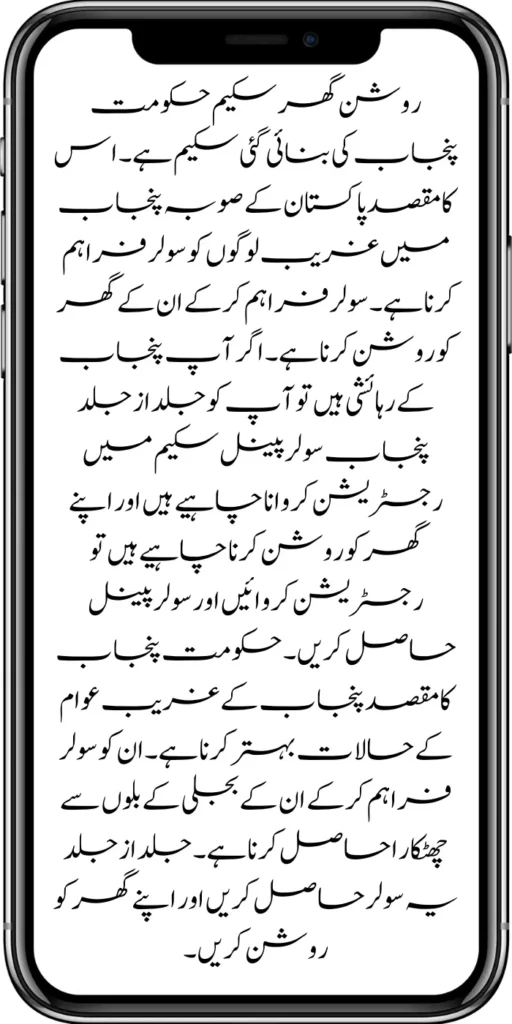 روشن گھر سکیم حکومت
پنجاب کی بنائی گئی سکیم ہے۔ اس
کا مقصد پاکستان کے صوبہ پنجاب
میں غریب لوگوں کو سولر فراہم
کرنا ہے۔ سولر فراہم کرکے ان کے گھر
کو روشن کرنا ہے۔ اگر آپ پنجاب
کے رہائشی ہیں تو آپ کو جلد از جلد
پنجاب سولر پینل سکیم میں
رجسٹریشن کروانا چاہیے ہیں اور اپنے
گھر کو روشن کرنا چاہیے ہیں تو
رجسٹریشن کروائیں اور سولر پینل
حاصل کریں۔ حکومت پنجاب
کا مقصد پنجاب کے غریب عوام
کے حالات بہتر کرنا ہے۔ ان کو سولر
فراہم کرکے ان کے بجلی کے بلوں سے
چھٹکارا حاصل کرنا ہے۔ جلد از جلد
یہ سولر حاصل کریں اور اپنے گھر کو
روشن کریں۔